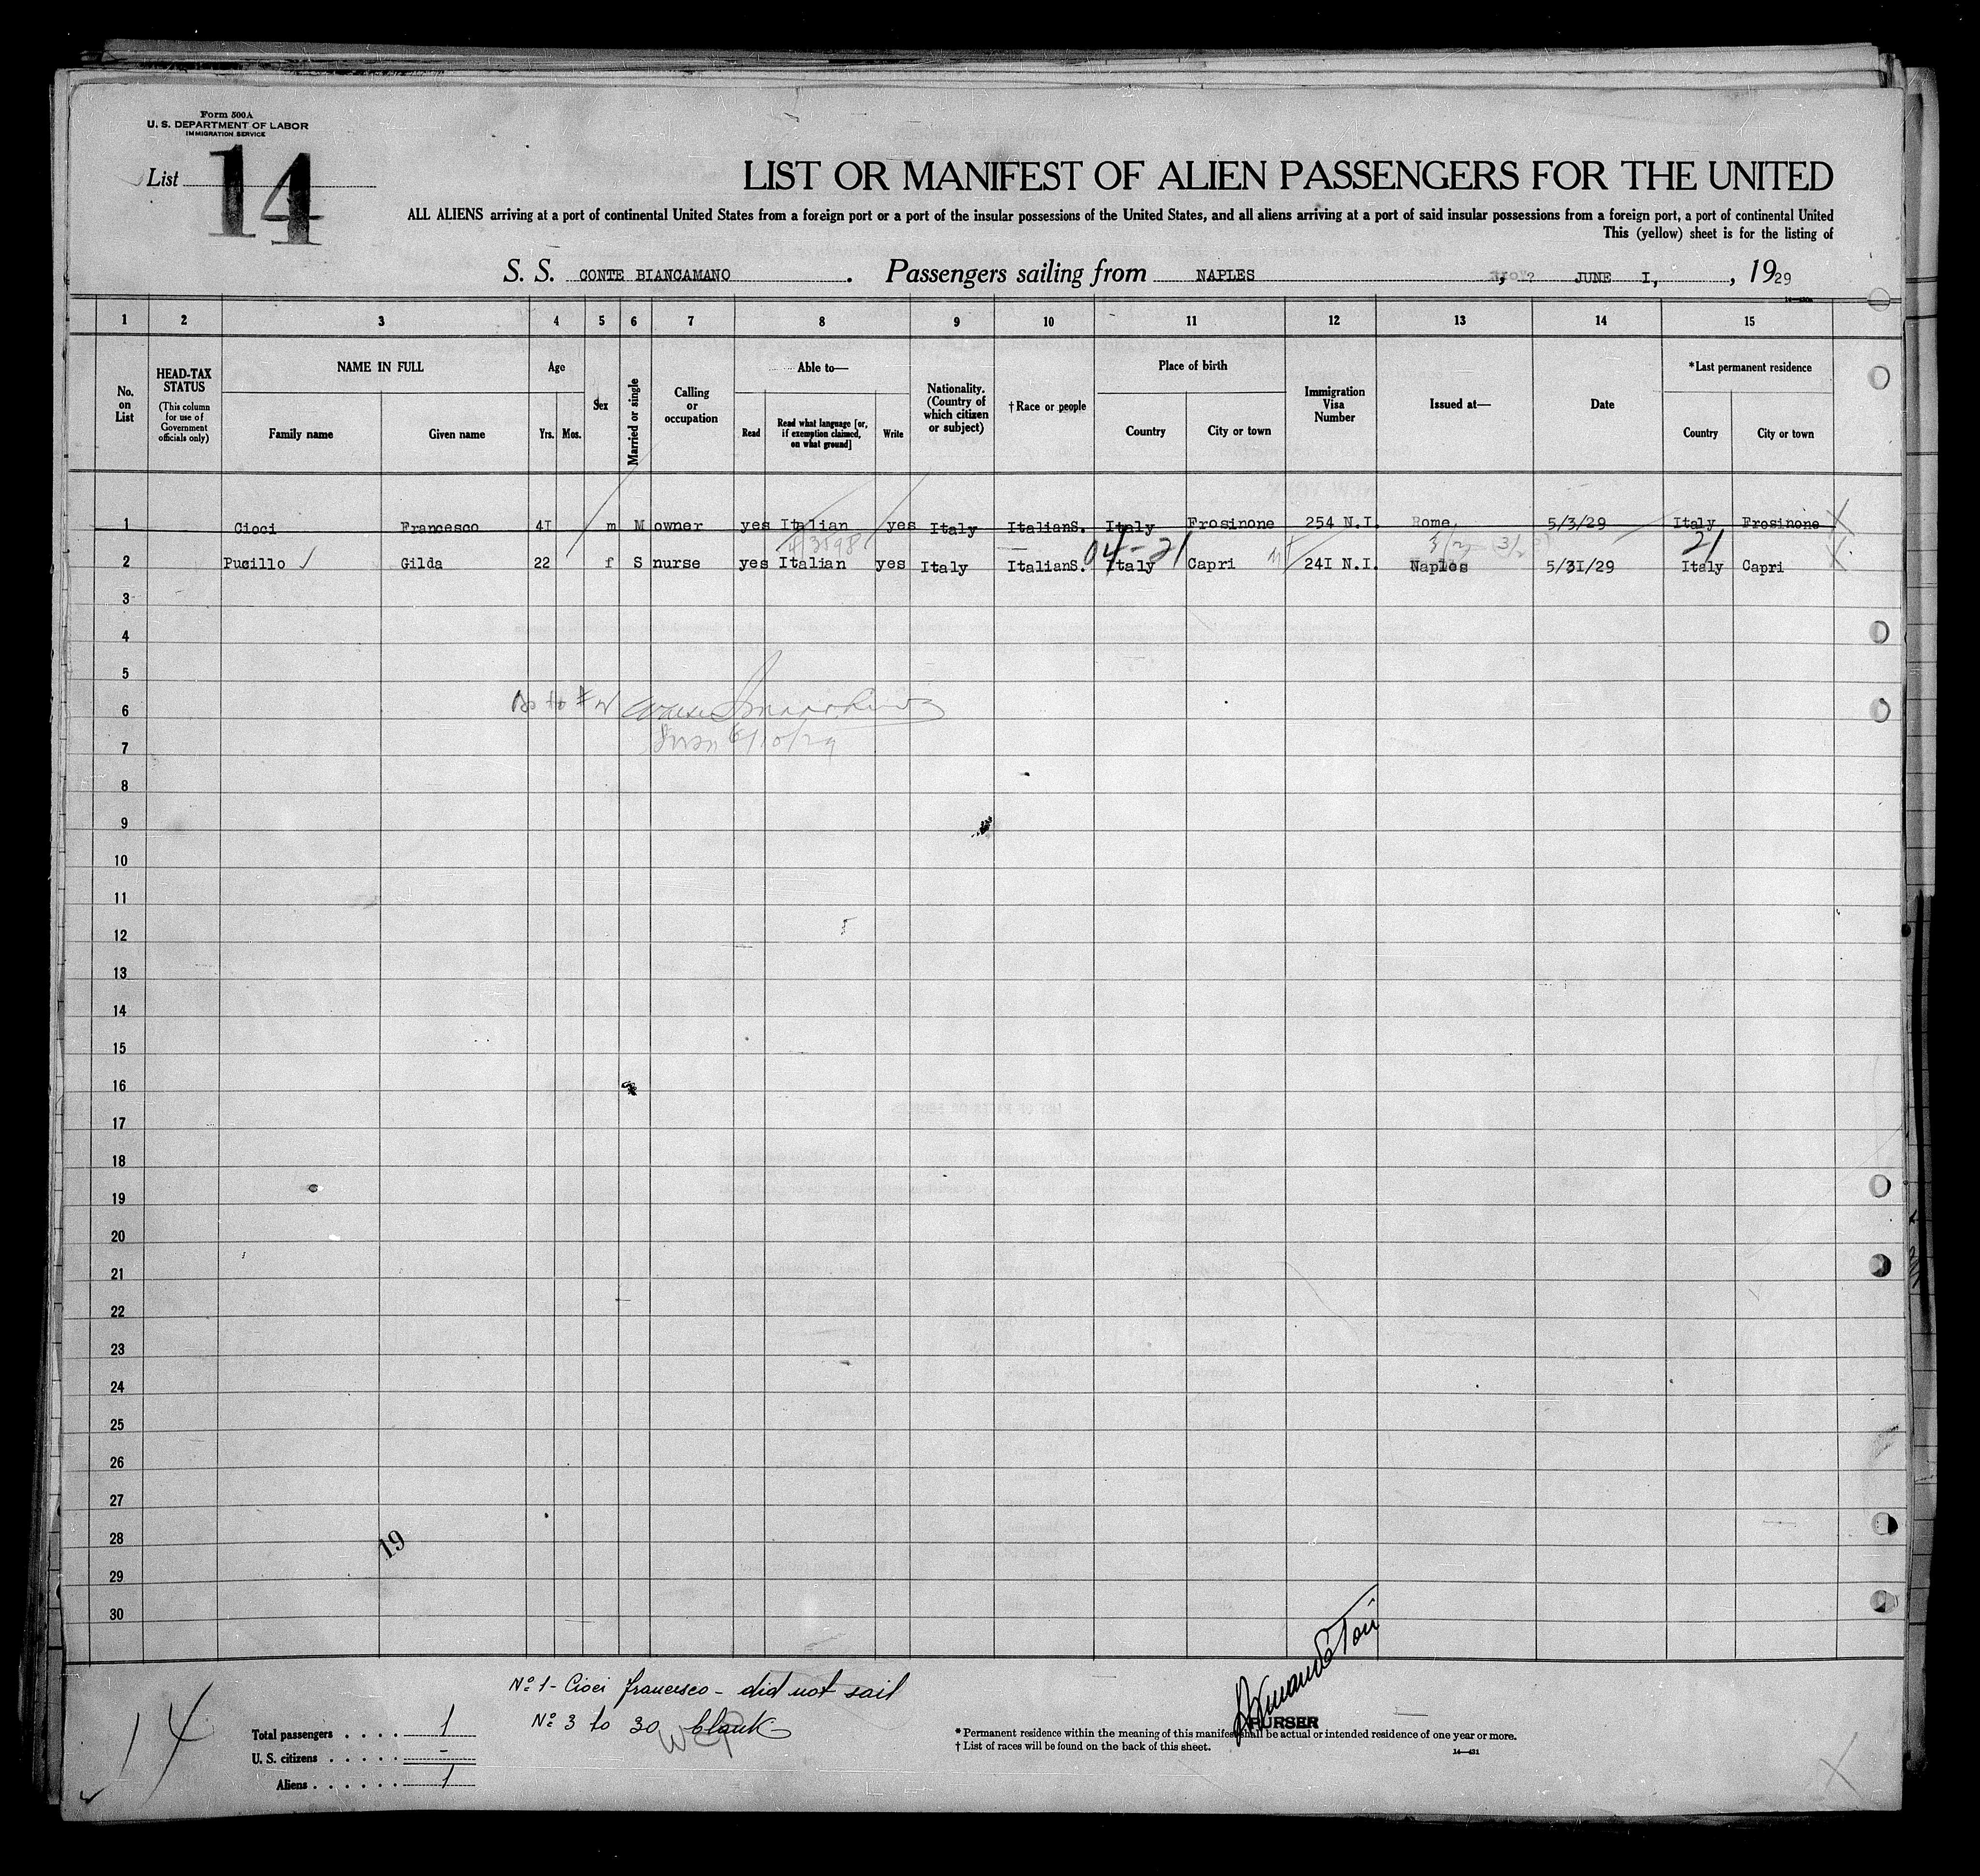 Form 500A
U. S. DEPARTMENT OF LABOR
IMMIGRATION SERVICE
List 14
LIST OR MANIFEST OF ALIEN PASSENGERS FOR THE UNITED
ALL ALIENS arriving at a port of continental United States from a foreign port or a port of the insular possessions of the United States, and all aliens arriving at a port of said insular possessions from a foreign port, a port of continental United
This (yellow) sheet is for the listing of
S. S. CONTE BIANCAMANO. Passengers sailing from NAPLES, JUNE I, , 1929
1 2 3 4 5 6 7 8 9 10 11 12 13 14 15
No. on List
HEAD-TAX STATUS
(This column for use of Government officials only)
NAME IN FULL
Family name
Given name
Age
Yrs. Mos.
Sex
Married or single
Calling or occupation
Able to—
Read
Read what language [or, if exemption claimed, on what ground]
Write
Nationality. (Country of which citizen or subject)
† Race or people
Place of birth
Country
City or town
Immigration Visa Number
Issued at—
Date
*Last permanent residence
Country
City or town
1 Cioci Francesco 4I m M owner yes Italian yes Italy ItalianS. Italy Frosinone 254 N.I. Rome. 5/3/29 Italy Frosinone X
43598 04-21 21
2 Pucillo ✓ Gilda 22 f S nurse yes Italian yes Italy ItalianS. Italy Capri 24I N.I. Naples 5/3I/29 Italy Capri X
3
4
5
6
As to #
7
6/10/29
8
9
10
11
12
13
14
15
16
17
18
19
20
21
22
23
24
25
26
27
28
19
29
30
Nº 1 - Cioci Francesco - did not sail
Nº 3 to 30 blank
14
Total passengers . . . . 1
U. S. citizens . . . . . -
Aliens . . . . . . 1
PURSER
* Permanent residence within the meaning of this manifest shall be actual or intended residence of one year or more.
† List of races will be found on the back of this sheet.
14—431
X